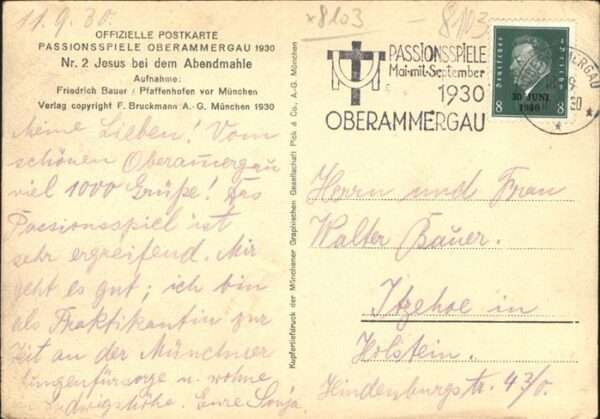 11.9.30.
x8103 – 8103
OFFIZIELLE POSTKARTE
PASSIONSSPIELE OBERAMMERGAU 1930
Nr. 2 Jesus bei dem Abendmahle
Aufnahme:
Friedrich Bauer / Pfaffenhofen vor München
Verlag copyright F. Bruckmann A.-G. München 1930
Meine Lieben! Vom
schönen Oberamergau
viel 1000 Grüße! Das
Passionsspiel ist
sehr ergreifend. Mir
geht es gut; ich bin
als Praktikantin zur
Zeit an der Münchner
Lungenfürsorge u. wohne
in Ludwigshöhe. Eure Sonja
Kupfertiefdruck der Münchner Graphischen Gesellschaft Pick & Co., A.-G. München
PASSIONSSPIELE
Mai mit September
1930
OBERAMMERGAU
Deutsches Reich
30. JUNI
1930
8 8
Herrn und Frau
Walter Bauer.
Itzehoe in
Holstein.
Hindenburgstr. 43/0.